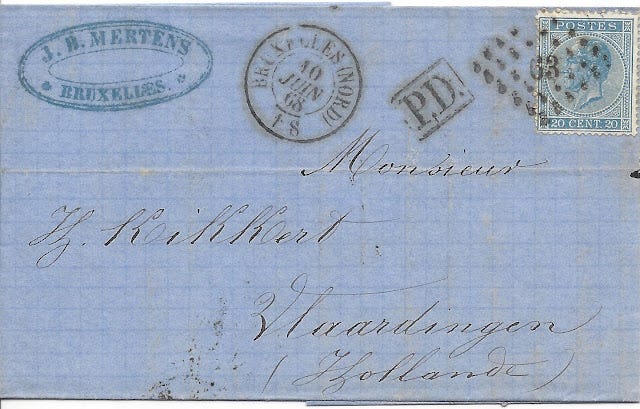 J. B. MERTENS
BRUXELLES.
BRUXELLES (NORD)
10
JUIN
68
1-8
P.D.
63
POSTES
20 CENT. 20
Monsieur
H. Kikkert
Vlaardingen
(Hollande)